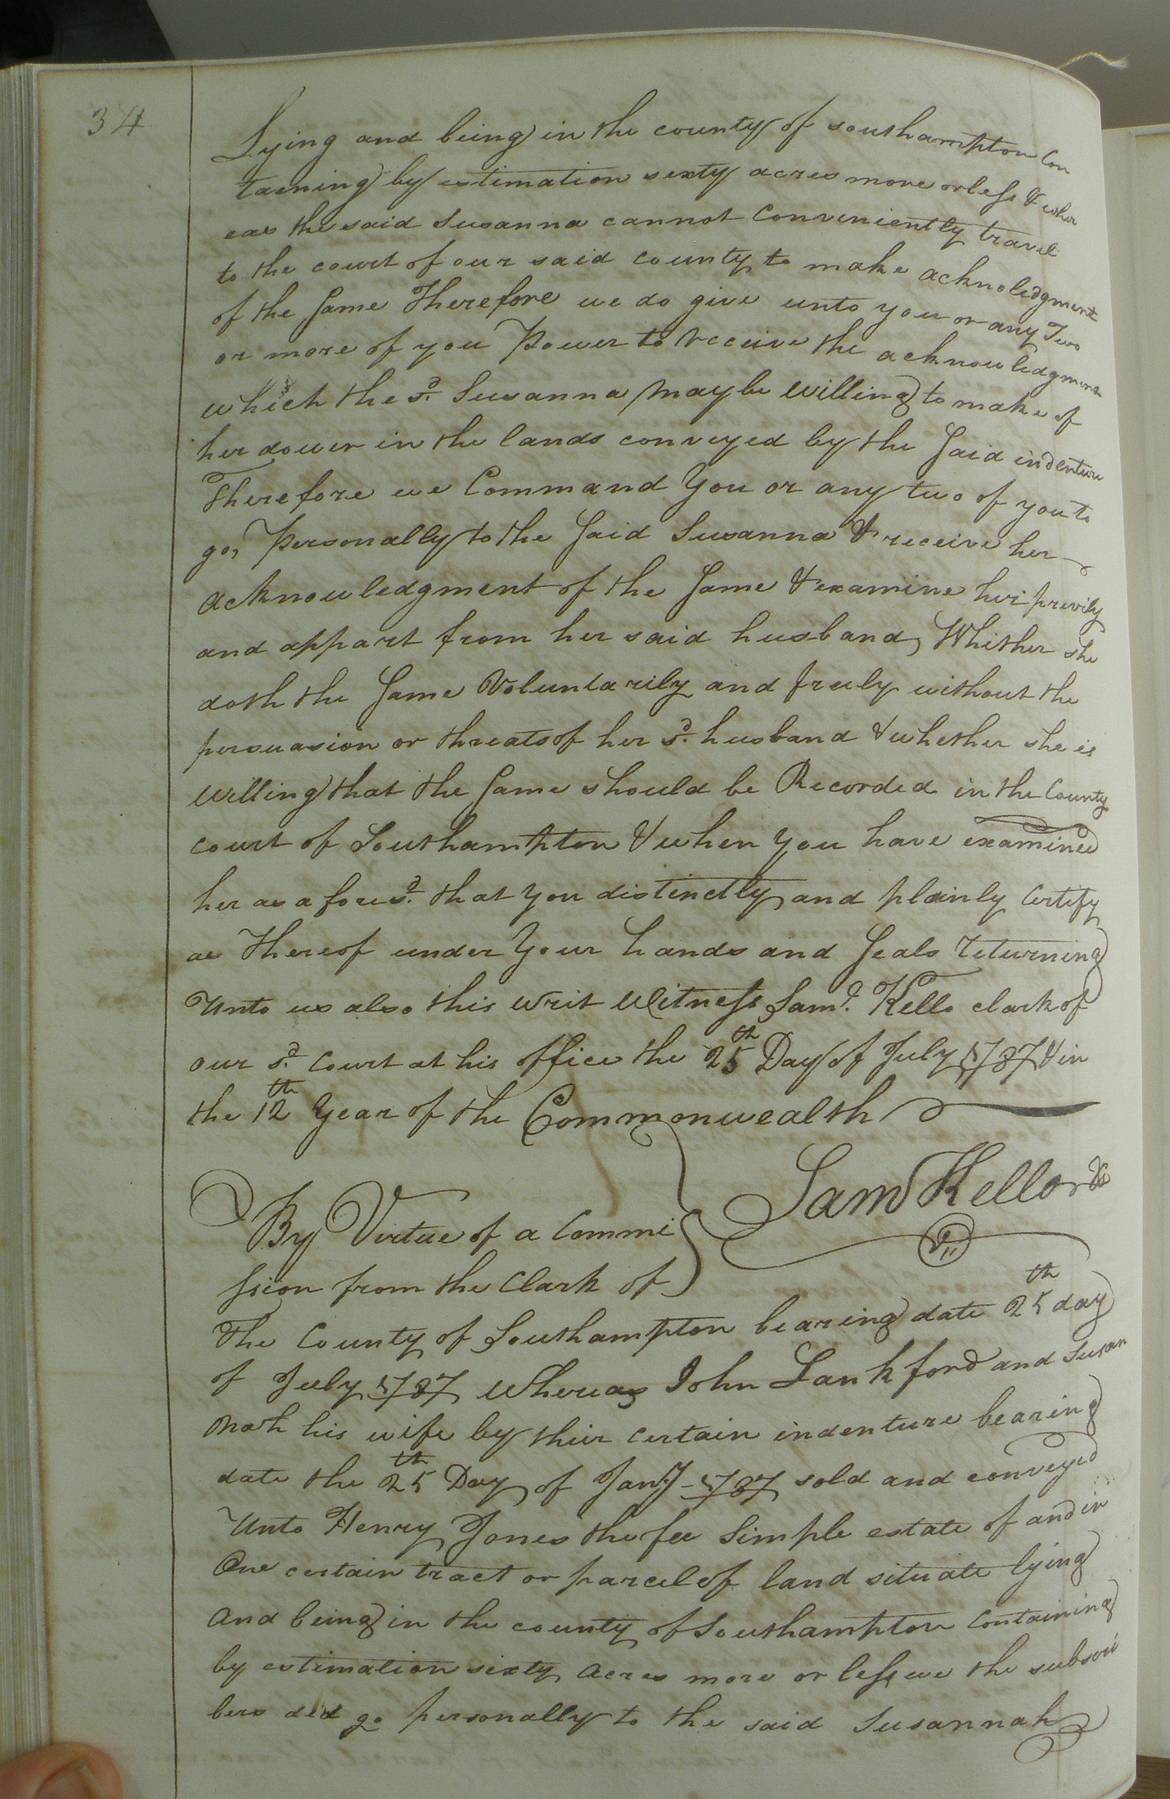 34
Lying and being in the county of southampton Con
taining by estimation sexty acres more or less & wher
eas the said Susanna cannot Conveniently travel
to the court of our said county to make acknoledgment
of the same Therefore we do give unto you or any Two
or more of you Power to receive the acknowledgment
which the sd. Susanna may be willing to make of
her dower in the lands conveyed by the said indenture
Therefore we Command You or any two of you to
go, Personally to the said Susanna & receive her
acknowledgment of the same & examine her privily
and appart from her said husband, Whither she
doth the same Voluntarily and freely without the
persuasion or threats of her sd. husband & whether she is
willing that the same should be Recorded in the County
court of Southampton & when you have examined
her as afores.d that you distinctly and plainly certify
as thereof under Your hands and seals returning
Unto us also this writ Witness Sam.l Kello clark of
our sd. court at his office the 25th Day of July 1787 & in
the 12th Year of the Commonwealth
Sam Kello
By Virtue of a Commi
ssion from the Clark of
The County of Southampton bearing date 25th day
of July 1787 Whereas John Lankford and Susan
nah his wife by their certain indenture bearing
date the 25th Day of Jany 1787 sold and conveyed
Unto Henry Jones the fee Simple estate of and in
One certain tract or parcel of land situate lying
And being in the county of Southampton Containing
by estimation sixty Acres more or less we the subscri
bers did go personally to the said Susannah